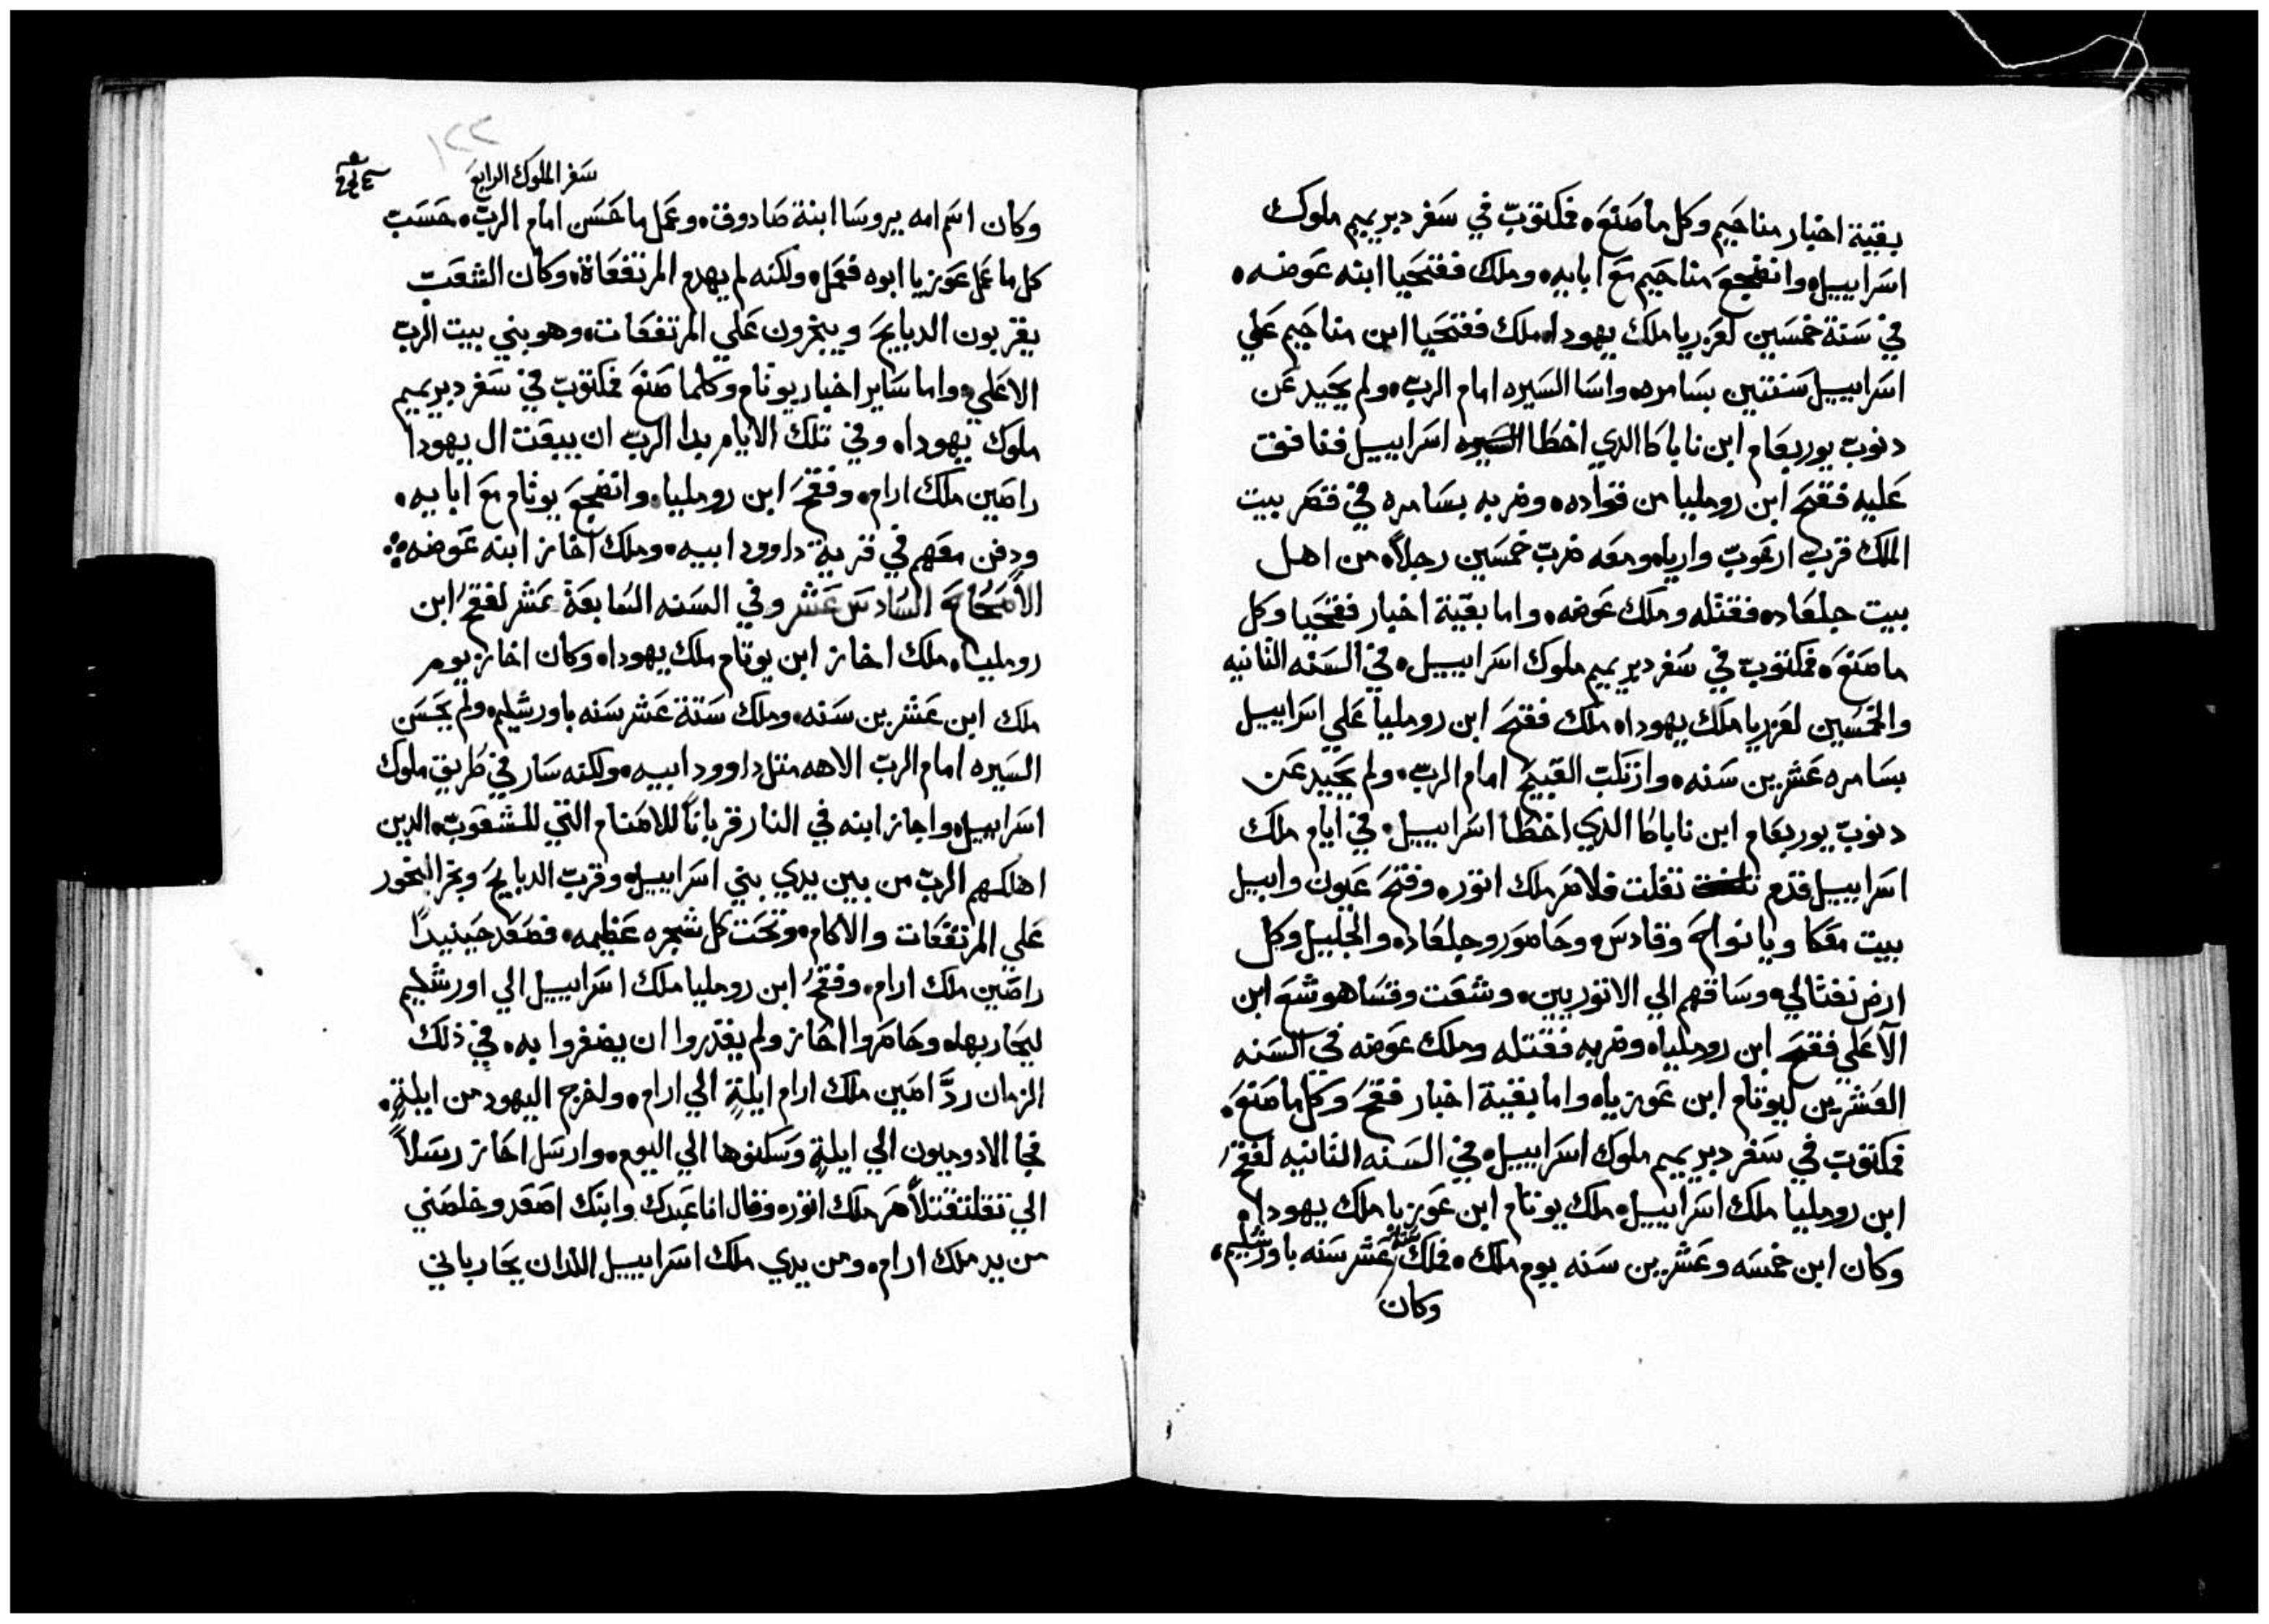 بقية اخبار مناحيم وكل ما صنعَه فمكتوبٌ في سَفر دبريميم ملوك
اسرابييل وانضجعَ مناحيم مع ابايه وملك ففتحيا ابنه عوضه
في سَنة خمسَين لعزريا ملك يهودا ملك ففتحيا ابن مناحيم علي
اسرابييل سَنتين بسَامره واسَا السَيره امام الرب ولم يحيد عن
دنوب يوربعام ابن ناباكا الدي اخطا اسرابييل فنافق
عليه ففتح ابن روملیا من قواده وضربه بسامره في قصر بيت
الملك قرب ارعوب واريا ومعه ضرب خمسَين رجلاً من اهل
بيت جلعاد فقتله وملك عوضه واما بقية اخبار ففتحيا وكل
ما صنعَه فمكتوب في سَفر دبريميم ملوك اسرابييل في السَنه الثانيه
والخمسَين لعزريا ملك يهودا ملك ففتح ابن رومليا علي اسرابييل
بسَامره عشرين سَنه وازتكب القبيح امام الرب ولم يحيد عن
دنوب يوربعام ابن ناباكا الدي اخطا اسرابييل في ايام ملك
اسرابييل قدم تغلت فلاصر ملك اتور وفتح عيون وابيل
بيت معَكا ويانواح وقادس وحاصور وجلعاد والجليل وكل
ارض نفتالي وسَاقهم الي الاتوريين وشعَت وقسَا هوشع ابن
الاعَلي ففتح ابن رومليا وضربه فقتله وملك عوضه في السَنه
العشرين ليوثام ابن عوزيا واما بقية اخبار ففتح وكل ما صنعَه
فمكتوب في سَفر دبريميم ملوك اسرابييل في السَنه الثانيه لففتح
ابن رومليا ملك اسرابييل ملك يوتام ابن عوزيا ملك يهودا
وكان ابن خمسَه وعشرين سَنه يوم ملك فملك ستة عشر سَنه باورشليم
وكان
١٢٢
سَفر الملوك الرابع
وكان اسَم امه يروسَا ابنة صادوق وعمل ما حسَن امام الرب حسَب
كل ما عمل عوزيا ابوه فعمل ولكنه لم يهدم المرتفعَاة وكان الشعب
يقربون الدبايح ويبخرون علي المرتفعَات وهو بني بيت الرب
الاعَلي واما سَاير اخبار يوتام وكلما صنعَ فمكتوب في سَفر دبريميم
ملوك يهودا وفي تلك الايام بدا الرب ان يبعَت ال يهودا
راصين ملك ارام وففتح ابن رومليا وانضجعَ يوثام مع ابايه
ودفن معَهم في قرية داوود ابيه وملك آخاز ابنه عوضه
الاصحاح السَادس عشر وفي السَنه السَابعة عشر لففتح ابن
رومليا ملك اخاز ابن يوتام ملك يهودا وكان اخاز يوم
ملك ابن عشرين سَنه وملك سَتة عشر سَنه باورشليم ولم يحسَن
السَيره امام الرب الاهه متل داوود ابيه ولكنه سَار في طريق ملوك
اسرابييل واجاز ابنه في النار قرباناً للاصنام التي للشعوب الدين
اهلكهم الرب من بين يدي بني اسرابييل وقرب الدبايح وبخر البخور
علي المرتفعَات والاكام وتحت كل شجره عظيمه فصعَد حينيداً
راصين ملك ارام وففتح ابن رومليا ملك اسرابييل الي اورشليم
ليحاربها وحاصروا اخاز ولم يقدروا ان يضفروا به في ذلك
الزمان ردَّ اصين ملك ارام ايلةٍ الي ارام واخرج اليهود من ايلةٍ
فجا الادوميون الي ايلةٍ وسَكنوها الي اليوم وارسَل اخاز رسَلاً
الي تغلتفتلاصر ملك اتور وقال انا عبدك وابنك اصعَد وخلصَني
من يد ملك ارام ومن يدي ملك اسرابييل اللدان يحارباني